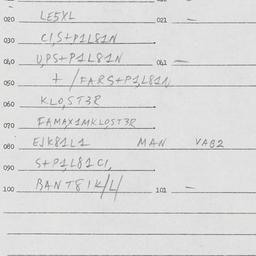 020 LE5XL 021 —
030 CI,S+P1L81N
040 U,PS+P1L81N 041 —
050 + /FARS+P1,L81N
060 KLO,ST3R
070 FAMAX1MKLO,ST3R
080 EJK81L1 MAN VAB2
090 S+P1,L81CI,
100 BANT81K/L/ 101 —